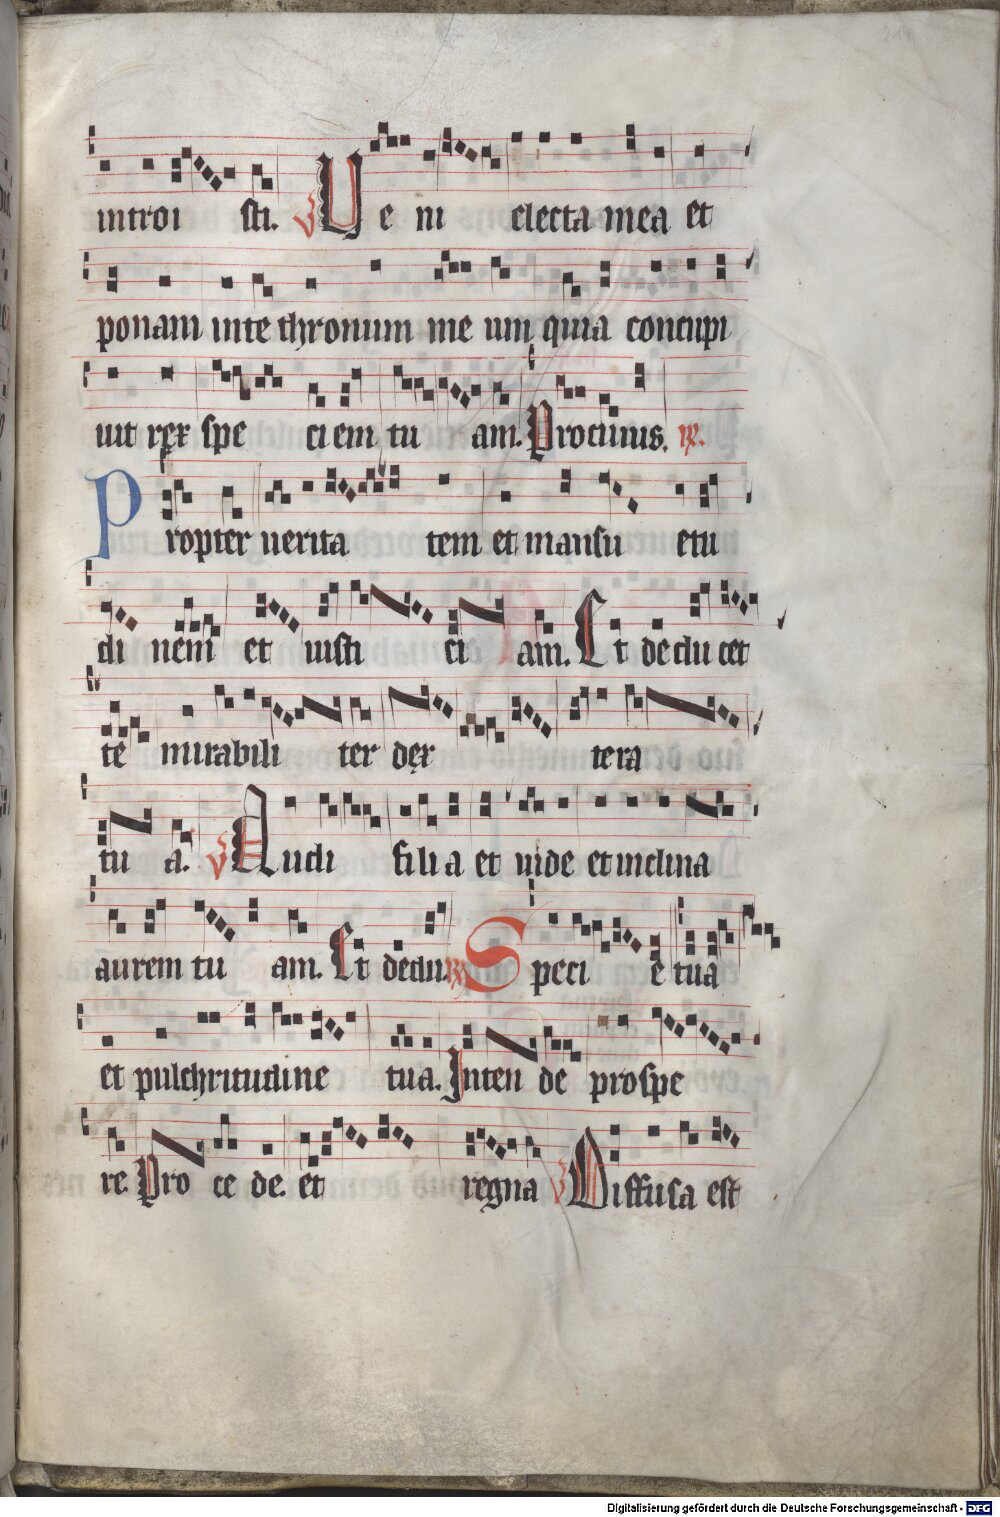 214
introi sti. V Ue ni electa mea et
ponam in te thronum me um quia concupi
uit rex spe ciem tu am. Procinus. R.
Propter uerita tem et mansu etu
di nem et iusti ci am. Et deducet
te mirabili ter dex tera
tu a. V Audi filia et uide et inclina
aurem tu am. Et dedu. R Speci e tua
et pulchritudine tua. Inten de prospe
re. Pro ce de. et regna V Diffusa est
Digitalisierung gefördert durch die Deutsche Forschungsgemeinschaft - DFG